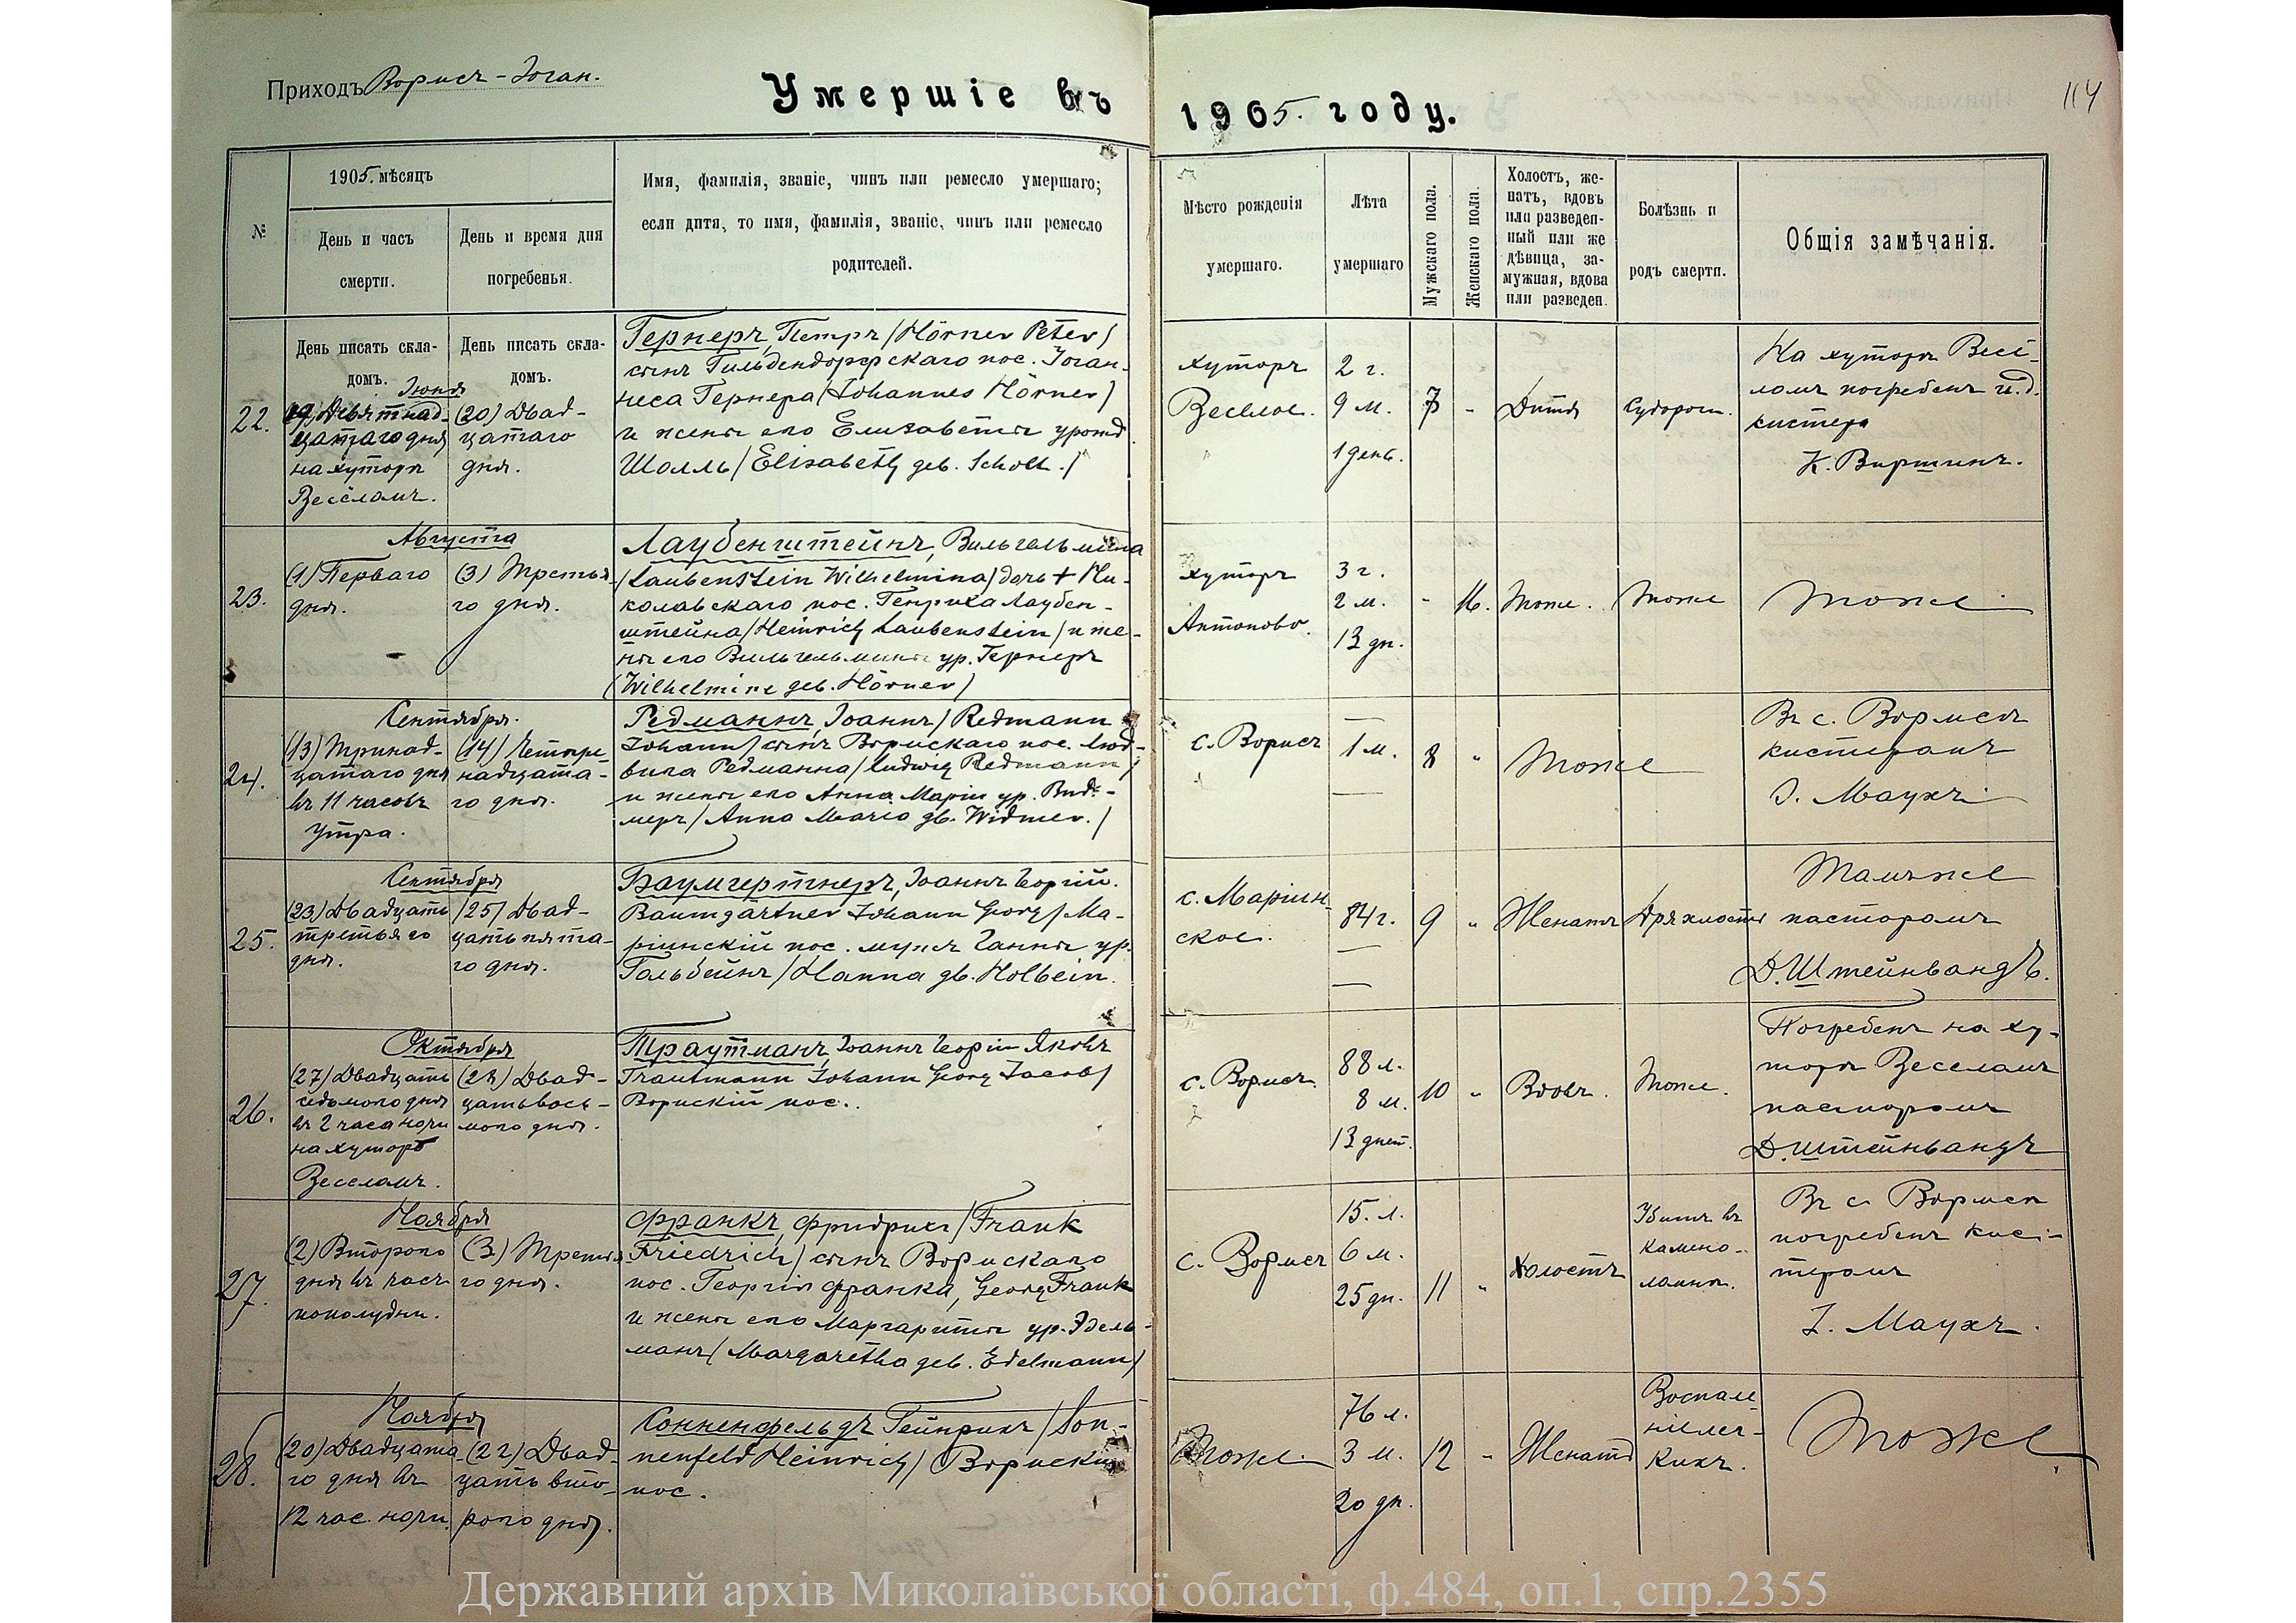 Приходъ Вормсъ-Іоган.
Умершіе въ
1905 году.
114
№
1905 мѣсяцъ
День и часъ
смерти.
День и время дня
погребенья.
Имя, фамилія, званіе, чинъ или ремесло умершаго;
если дитя, то имя, фамилія, званіе, чинъ или ремесло
родителей.
Мѣсто рожденія
умершаго.
Лѣта
умершаго
Мужскаго пола.
Женскаго пола.
Холостъ, же-
натъ, вдовъ
или разведен-
ный или же
дѣвица, за-
мужная, вдова
или разведен.
Болѣзнь и
родъ смерти.
Общія замѣчанія.
День писать скла-
домъ.
День писать скла-
домъ.
Іюня
22.
(19) Девятнад-
цатаго дня
на хуторѣ
Веселомъ.
(20) Двад-
цатаго
дня.
Гернеръ, Петръ /Hörner Peter/
сынъ Гильдендорфскаго пос. Іоган-
неса Гернера /Johannes Hörner/
и жены его Елизаветы урожд.
Шолль /Elisabeth geb. Scholl./
хуторъ
Веселое.
2 г.
9 м.
1 день.
7
"
Дитя
Судороги.
На хуторѣ Весе-
ломъ погребенъ и.д.
кистера
К. Виршинъ.
Августа
23.
(1) Перваго
дня.
(3) Третья-
го дня.
Лаубенштейнъ, Вильгельмина
/Laubenstein Wilhelmina/ дочь + Ни-
колаевскаго пос. Генриха Лаубен-
штейна /Heinrich Laubenstein/ и же-
ны его Вильгельмины ур. Гернеръ
(Wilhelmine geb. Hörner)
хуторъ
Антоново.
3 г.
2 м.
13 дн.
"
16.
Тоже.
Тоже
Тоже
Сентября.
24.
(13) Тринад-
цатаго дня
въ 11 часовъ
утра.
(14) Четыре-
надцата-
го дня.
Редманнъ, Іоаннъ /Redmann
Johann/ сынъ Вормскаго пос. Люд-
вига Редманна /Ludwig Redmann/
и жены его Анна Маріи ур. Вид-
меръ /Anna Maria gb. Widmer./
с. Вормсъ
1 м.
8
"
Тоже
Въ с. Вормсѣ
кистеромъ
І. Маухъ
Сентября
25.
(23) Двадцать
третьяго
дня.
(25) Двад-
цать пята-
го дня.
Баумгертнеръ, Іоаннъ Георгій.
Baumgärtner Johann Georg/ Ма-
ріинскій пос. мужъ Ганны ур.
Гольбейнъ /Hanna gb. Holbein.
с. Маріин-
ское.
84 г.
9
"
Женатъ
Дряхлость
Тамъже
пасторомъ
Д. Штейнвандъ.
Октября
26.
(27) Двадцать
седьмого дня
въ 2 часа ночи
на хуторѣ
Веселомъ.
(28) Двад-
цатьвось-
мого дня.
Траутманъ, Іоаннъ Георгій Яковъ
Trautmann Johann Georg Jacob/
Вормскій пос.
с. Вормсъ.
88 л.
8 м.
13 дней.
10
"
Вдовъ.
Тоже.
Погребенъ на ху-
торѣ Веселомъ
пасторомъ
Д. Штейнвандъ
Ноября
27.
(2) Второго
дня въ часъ
пополудни.
(3) Третья-
го дня.
Франкъ, Фридрихъ /Frank
Friedrich/ сынъ Вормскаго
пос. Георгія Франка, Georg Frank
и жены его Маргариты ур. Эдель-
манъ /Margaretha geb. Edelmann/
с. Вормсъ
15. л.
6 м.
25 дн.
11
"
Холостъ
Убитъ въ
камено-
ломнѣ.
Въ с. Вормсѣ
погребенъ кис-
теромъ
І. Маухъ.
Ноября
28.
(20) Двадцата-
го дня въ
12 час. ночи.
(22) Двад-
цать вто-
рого дня.
Сонненфельдъ Гейнрихъ /Son-
nenfeld Heinrich/ Вормскій
пос.
Тоже.
76 л.
3 м.
20 дн.
12
"
Женатъ
Воспале-
ніе лег-
кихъ.
Тоже
Державний архів Миколаївської області, ф.484, оп.1, спр.2355